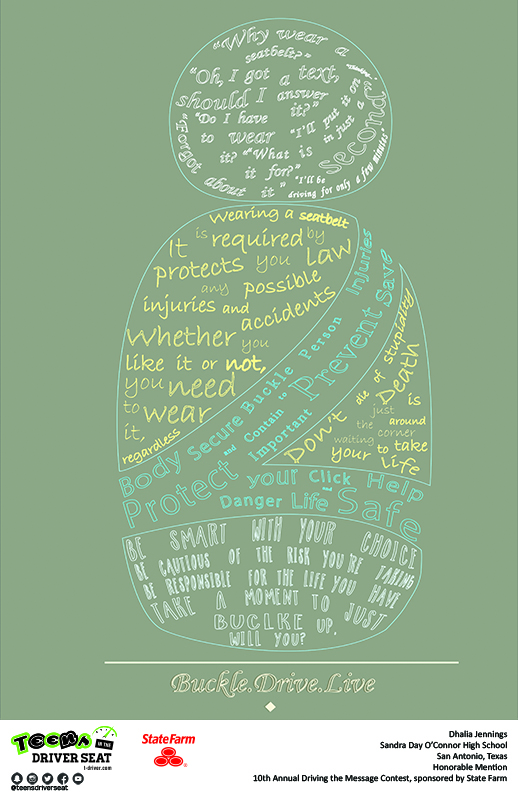 "Why wear a
seatbelt?"
"Oh, I got a text,
should I answer
it?"
"Do I have
to wear
it?"
"What is
it for?"
"I'll put it on
in just a
second"
"I'll be
driving for only a few minutes"
"Forgot
about it"
Wearing a seatbelt
It is required by law
protects you
any possible
injuries and accidents
Whether you
like it or not,
you need
to wear
it,
regardless
Body Secure Buckle Person Injuries
Protect and Contain to Prevent Save
Important
your Click Help
Danger Life and Safe
Don't die of stupidity
Death is
just around
the corner
waiting to take
your life
BE SMART WITH YOUR CHOICE
BE CAUTIOUS OF THE RISK YOU'RE TAKING
BE RESPONSIBLE FOR THE LIFE YOU HAVE
TAKE A MOMENT TO JUST
BUCLKE UP,
WILL YOU?
Buckle.Drive.Live
TEENS IN THE
DRIVER SEAT
t-driver.com
@teensdriverseat
State Farm
Dhalia Jennings
Sandra Day O'Connor High School
San Antonio, Texas
Honorable Mention
10th Annual Driving the Message Contest, sponsored by State Farm